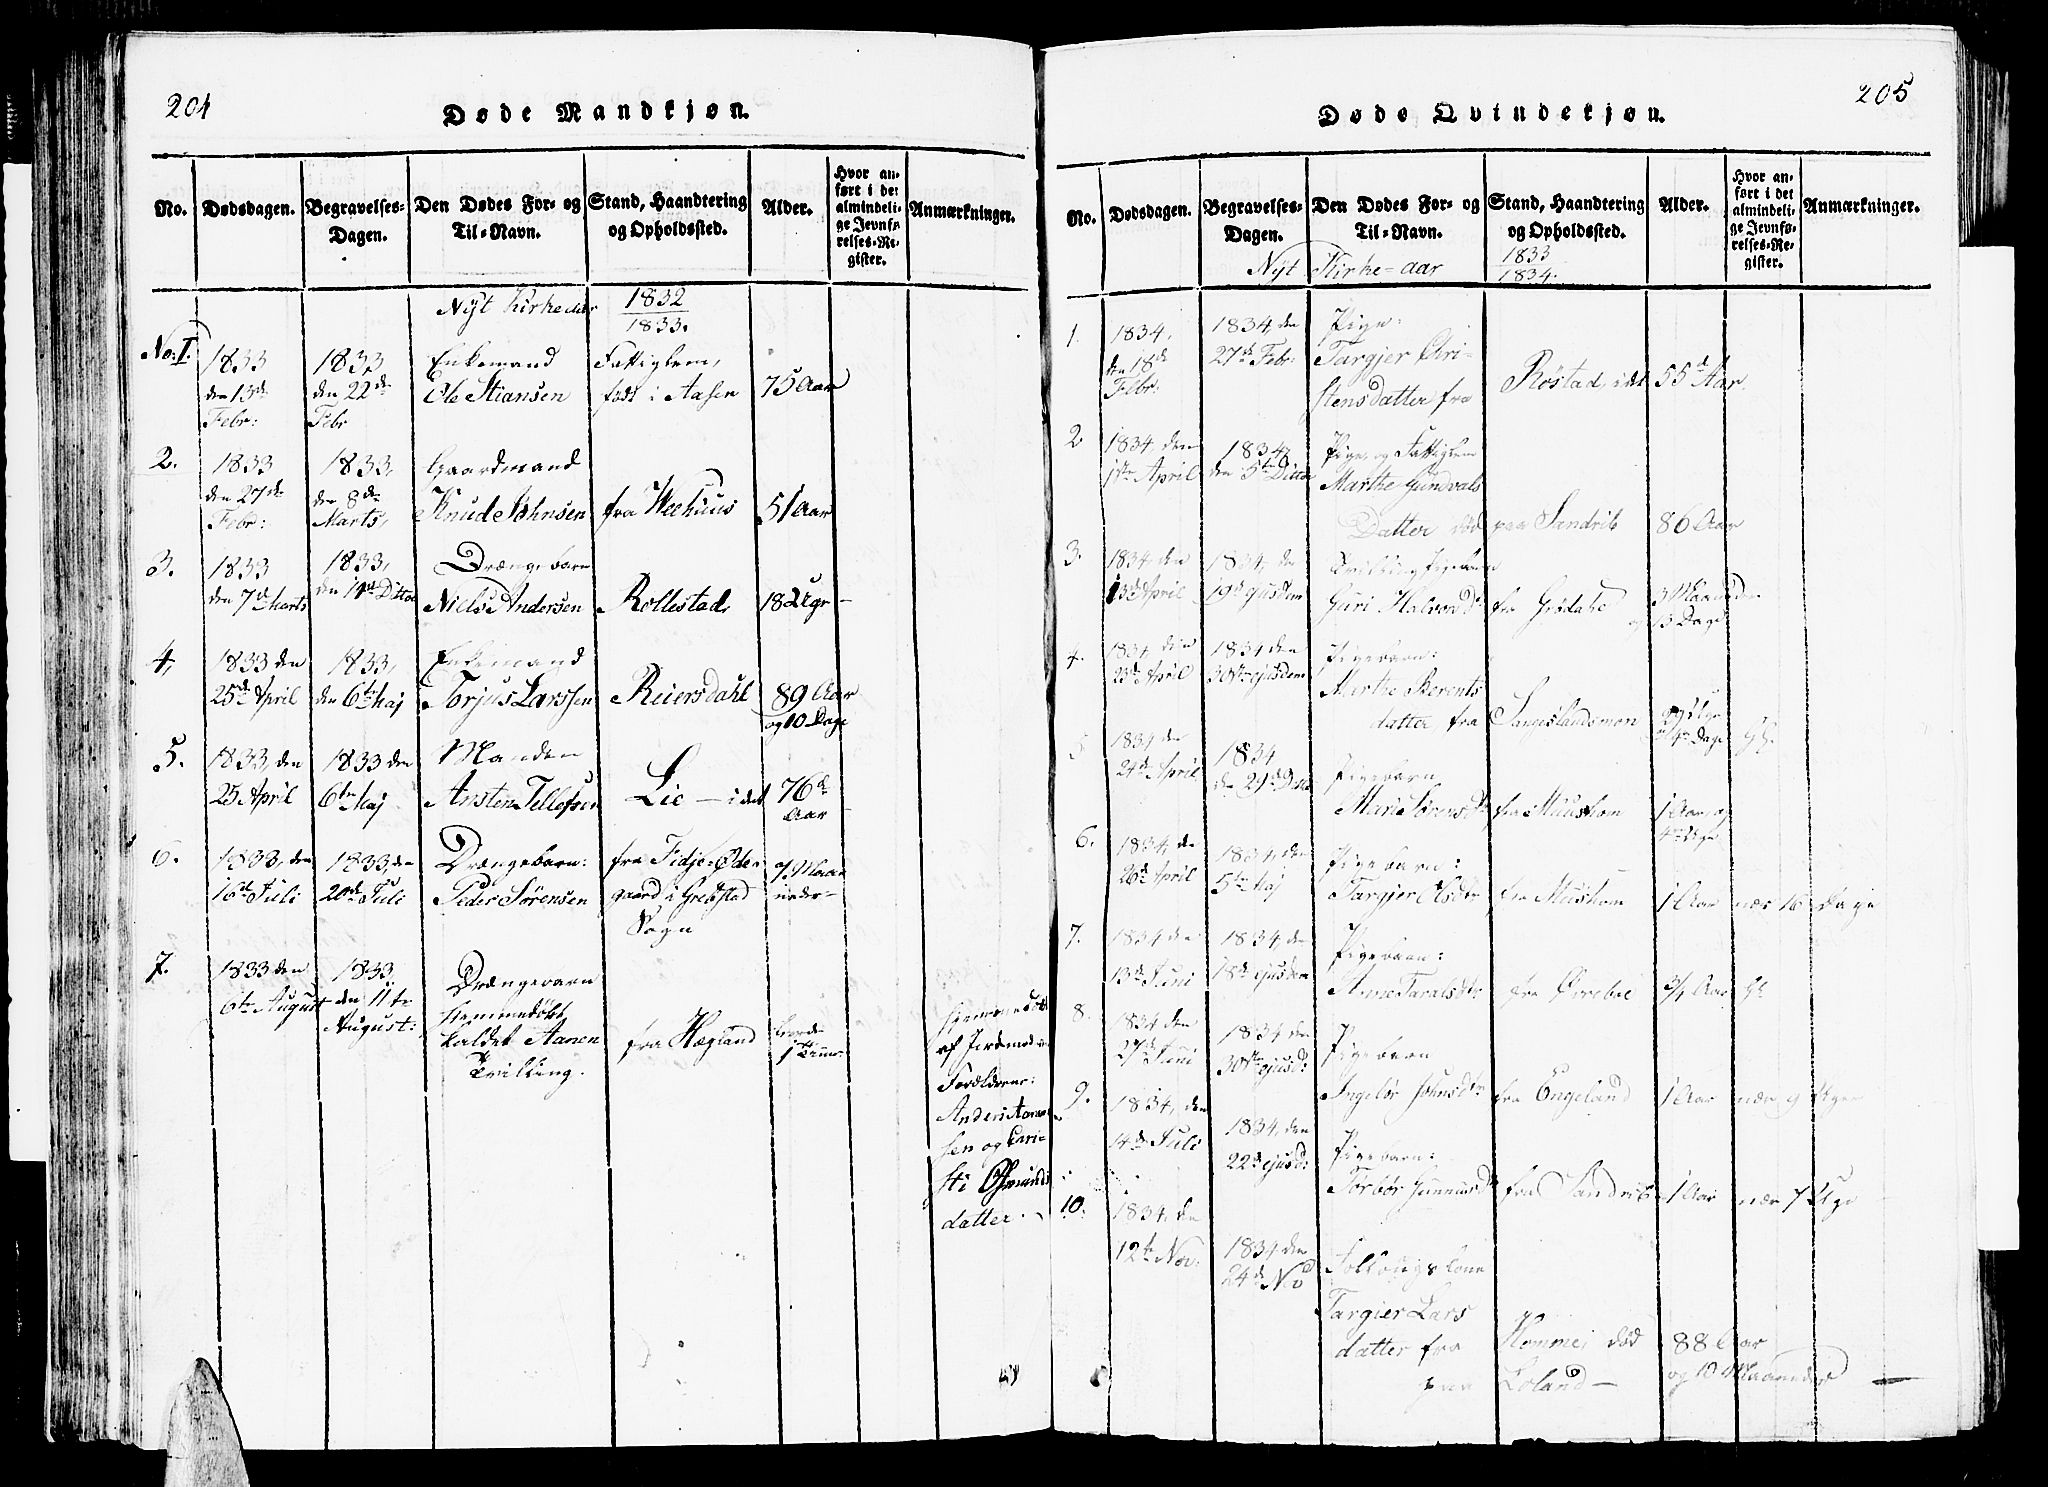 204
Døde Mandkjøn.
No.
Dødsdagen.
Begravelses-
Dagen.
Den Dødes For- og
Til-Navn.
Stand, Haandtering
og Opholdssted.
Alder.
Hvor an-
ført i det
almindeli-
ge Jevnfø-
relses-Re-
gister.
Anmærkninger.
Nyt Kirke aar 1832
1833.
No: 1.
1833
den 13de
Febr:
1833
den 22de
Febr
Enkemand
Ole Stiansen
Fattiglem,
født i Aasen
75 Aar
2.
1833
den 27de
Febr:
1833,
den 8de
Marts,
Gaardmand
Knud Johnsen
fra Weehuus
51 Aar
3.
1833
den 7de Marts
1833,
den 14de Ditto
Drængebarn
Niels Andersen
Rollestad,
18 Uger
4,
1833 den
25de April
1833,
den 6te Maj
Enkemand
Torjus Larssen
Reiersdahl
89 Aar
og 10 Dage
5.
1833, den
25 April
1833 den
6te Maj
Manden
Ansten Tellefsen
Lie — i det
76de
Aar
6.
1833, den
16de Juli
1833, den
20de Juli
Drængebarn:
Peder Sørensen
fra Fidje-Øde-
gaard i Grebstad
Sogn
9 Maa-
neder-
7.
1833 den
6te August
1833,
den 11te
August:
Drængebarn
hjemmedøbt
kaldet Aanen
Tvilling.
fra Hægland
levede
1 Time
hjemmedøbt
af Jordemod
Forældrene:
Anders Aanen-
sen og Kari-
sti Osmunds
datter.
205
Døde Qvindekjøn.
No.
Dødsdagen.
Begravelses-
Dagen.
Den Dødes For- og
Til-Navn.
Stand, Haandtering
og Opholdssted.
Alder.
Hvor an-
ført i det
almindeli-
ge Jevnfø-
relses-Re-
gister.
Anmærkninger.
Nyt Kirke-aar 1833
1834.
1.
1834,
den 18de
Febr:
1834, den
27de Febr:
Pige:
Targjer Chri-
stensdatter fra
Røstad, i det
55de Aar.
2
1834, den
1ste April
1834,
den 5te Ditto
Pige og Fattiglem
Marthe Gundvals
Datter død paa Sandrib
86 Aar
3.
1834, den
13de April
1834, den
19de ejusdem
Tvilling Pigebarn
Guri Halvord:
fra Grødahe
3 Maaneder
og 13 Dage
4.
1834 den
23de April
1834 den
30te ejusdem
Pigebarn:
Marthe Berents
datter, fra
Sangeslandsmon
4 Dage
5
1834 den
24de April
1834
den 29de Ditto
Pigebarn
Marie Sørensdtr
fra Muushom
1 Aar, og
4 Uger
6.
1834, de
26de April
1834, den
5te Maj
Pigebarn:
Targjer Olsdtr
fra Muushom
1 Aar nær 16 Dage
7.
1834 den
13de Juni
1834, den
18de ejusdem
Pigebarn:
Anne Taralsdtr
fra Ørrebæ
3/4 Aar
8.
1834 den
27de Juni
1834 den
30te ejusd:
Pigebarn
Ingebør Johnsdtr
fra Engeland
1 Aar nær 9 Uger
9.
1834, den
14de Juli
1834, den
22de ejusd:
Pigebarn:
Torbør Gunnursdtr
fra Sandrib
1 Aar nær 7 Uge
10:
1834, den
12te Nov:
1834 den
24de Nov
Follougskone
Targier Lars
datter fra
Homme, død
paa Loland —
88 Aar
og 10 Maaneder